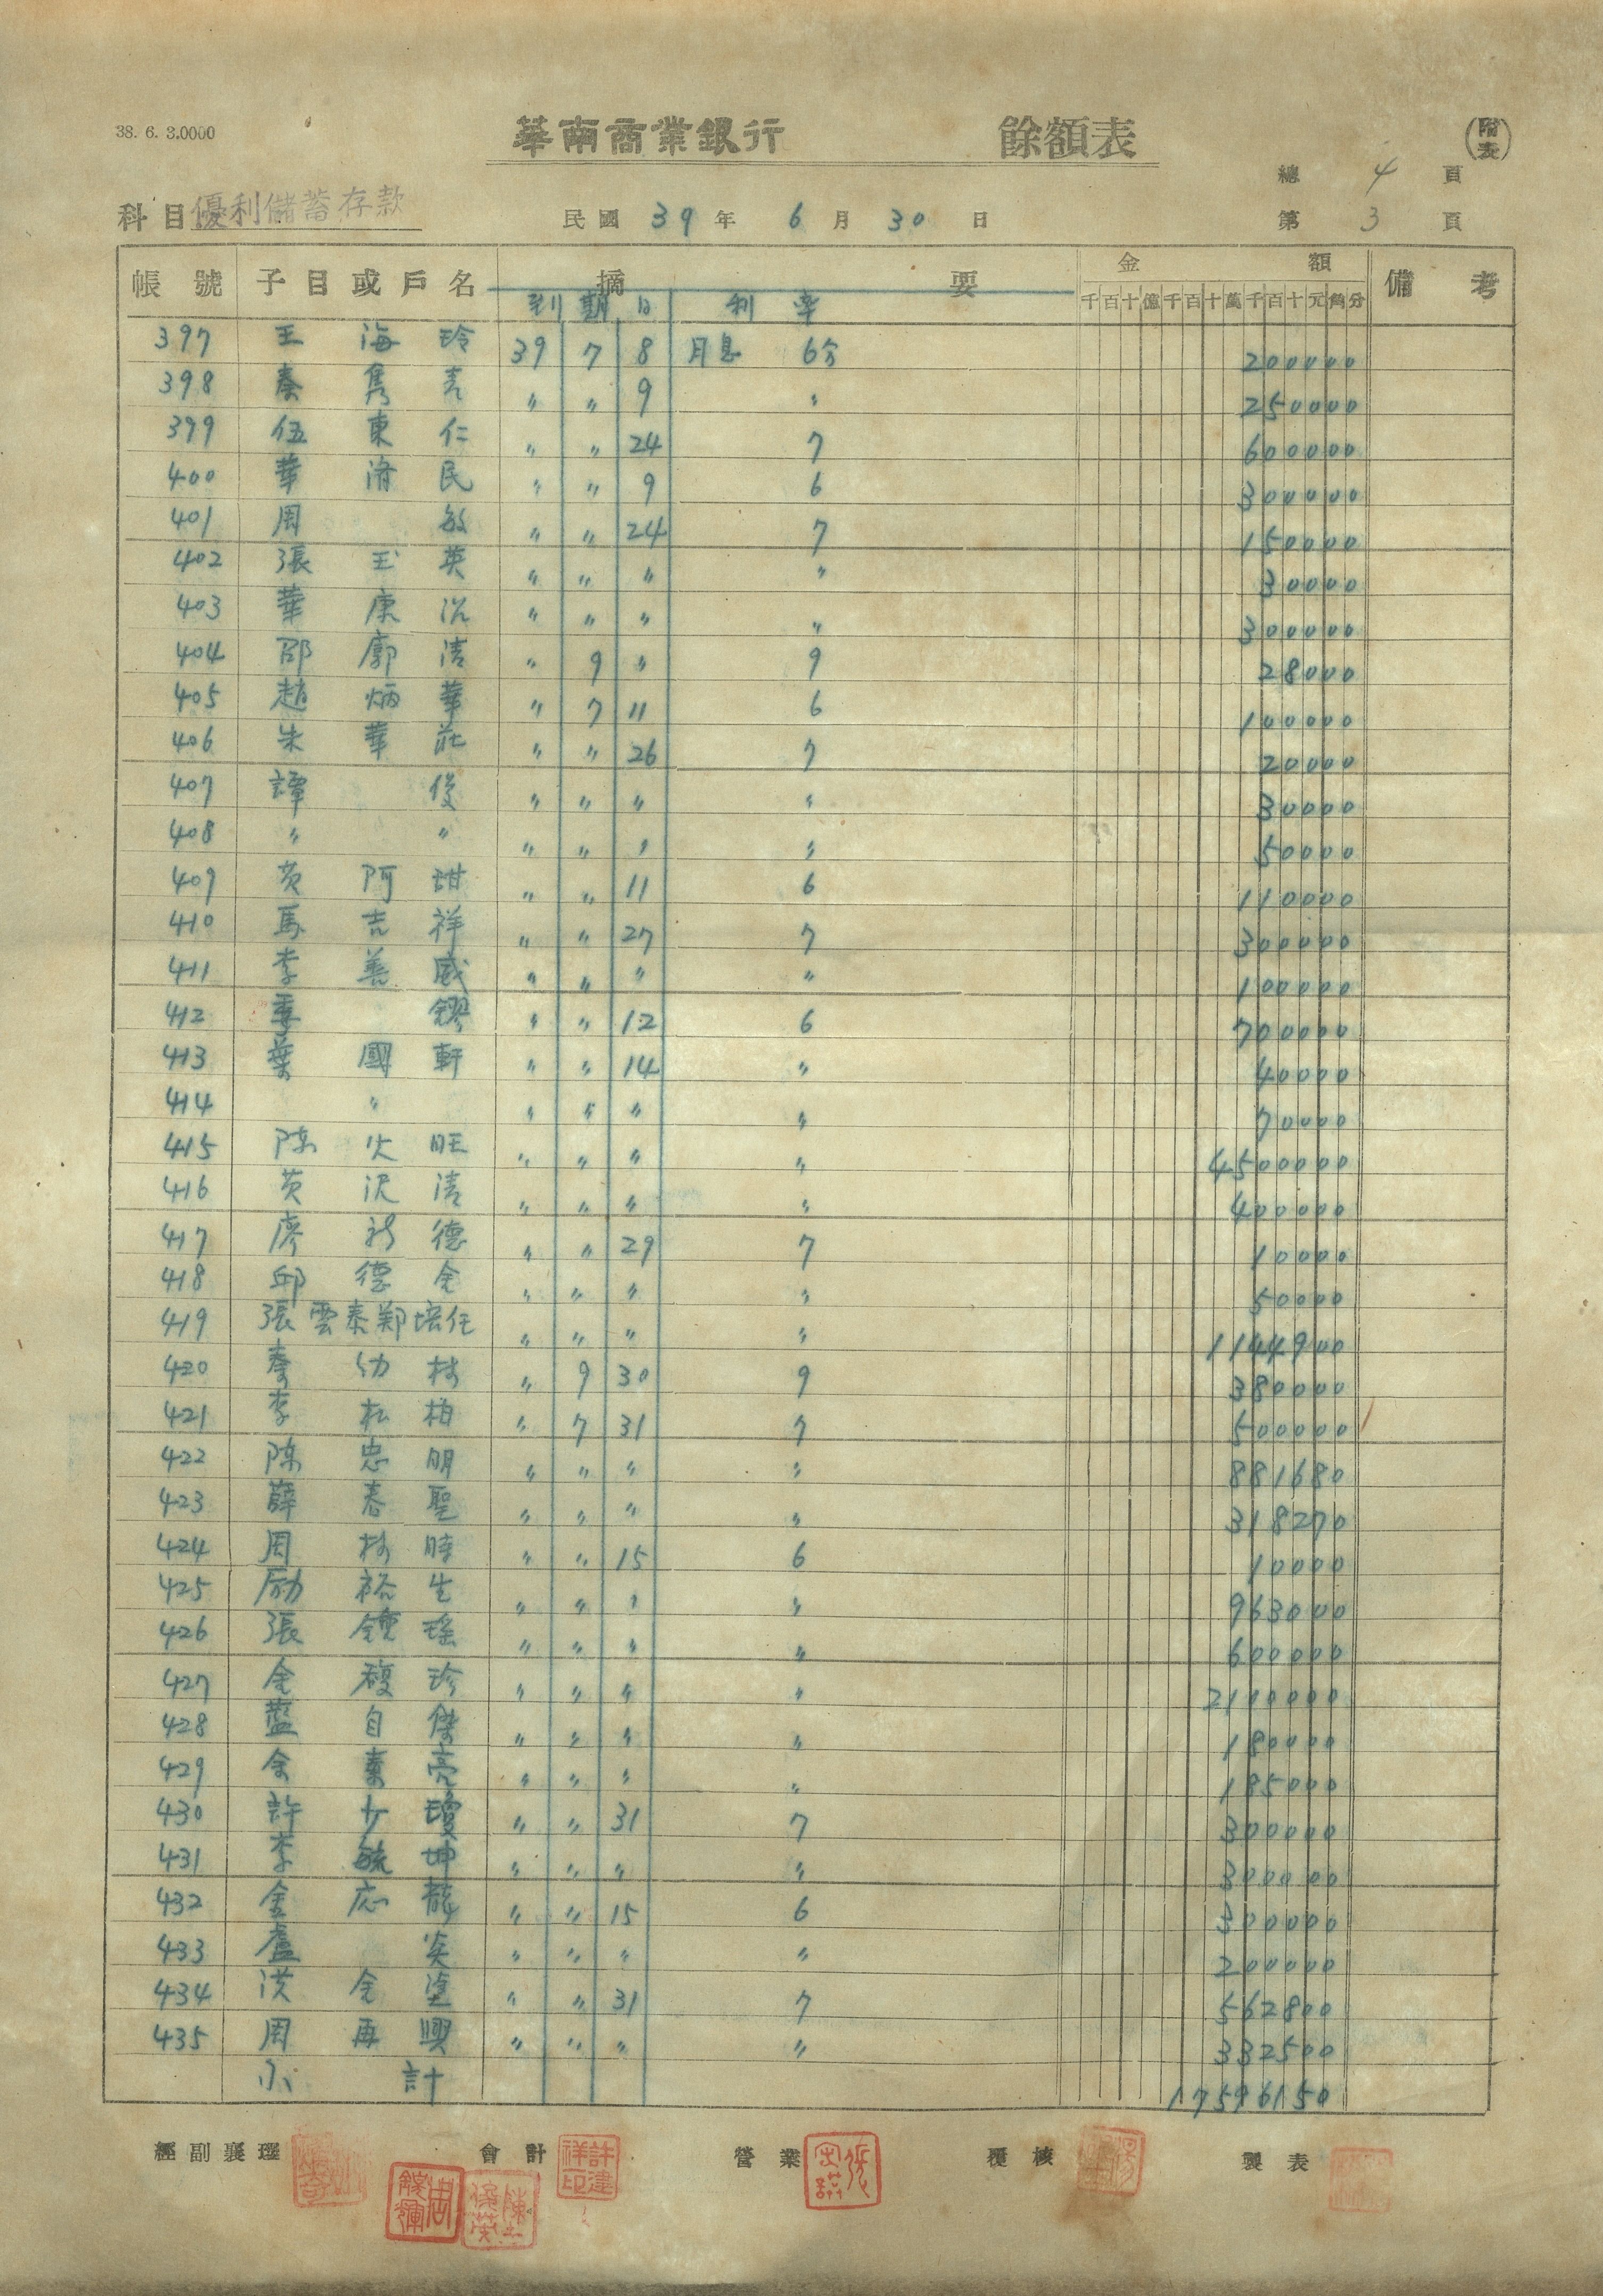 38. 6. 3.0000
華南商業銀行 餘額表 (附表)
總 4 頁
科目 優利儲蓄存款 民國 39 年 6 月 30 日 第 3 頁
帳號 子目或戶名 摘要 金額 備考
到期日 利率 千百十億千百十萬千百十元角分
397 王海玲 39 7 8 月息 6分 200000
398 秦雋 〃 〃 9 〃 250000
399 伍東仁 〃 〃 24 7 600000
400 華濟民 〃 〃 9 6 300000
401 周敏 〃 〃 24 7 150000
402 張玉英 〃 〃 〃 〃 30000
403 華康 〃 〃 〃 〃 300000
404 邵廓清 〃 9 〃 9 28000
405 趙炳華 〃 7 11 6 100000
406 朱華莊 〃 〃 26 7 20000
407 譚俊 〃 〃 〃 〃 30000
408 〃 〃 〃 〃 〃 〃 50000
409 黃阿甜 〃 〃 11 6 110000
410 馬吉祥 〃 〃 27 7 300000
411 李善威 〃 〃 〃 〃 100000
412 季鏐 〃 〃 12 6 700000
413 葉國軒 〃 〃 14 〃 40000
414 〃 〃 〃 〃 〃 70000
415 陳火旺 〃 〃 〃 〃 4500000
416 黃沢清 〃 〃 〃 〃 400000
417 廖德 〃 〃 29 7 10000
418 邱德全 〃 〃 〃 〃 50000
419 張雲泰鄭培任 〃 〃 〃 〃 1144900
420 秦幼林 〃 9 30 9 380000
421 李松柏 〃 7 31 7 500000
422 陳忠明 〃 〃 〃 〃 881680
423 薛春聖 〃 〃 〃 〃 318270
424 周林時 〃 〃 15 6 10000
425 励裕生 〃 〃 〃 〃 963000
426 張鍾瑤 〃 〃 〃 〃 600000
427 金馥珍 〃 〃 〃 〃 2100000
428 藍自傑 〃 〃 〃 〃 180000
429 余素亮 〃 〃 〃 〃 185000
430 許少瓊 〃 〃 31 7 300000
431 李毓坤 〃 〃 〃 〃 300000
432 金応龢 〃 〃 15 6 300000
433 盧炎 〃 〃 〃 〃 200000
434 洪金塗 〃 〃 31 7 562800
435 周再興 〃 〃 〃 〃 332500
小計 17596150
經副襄理 會計 營業 覆核 製表
許建祥印